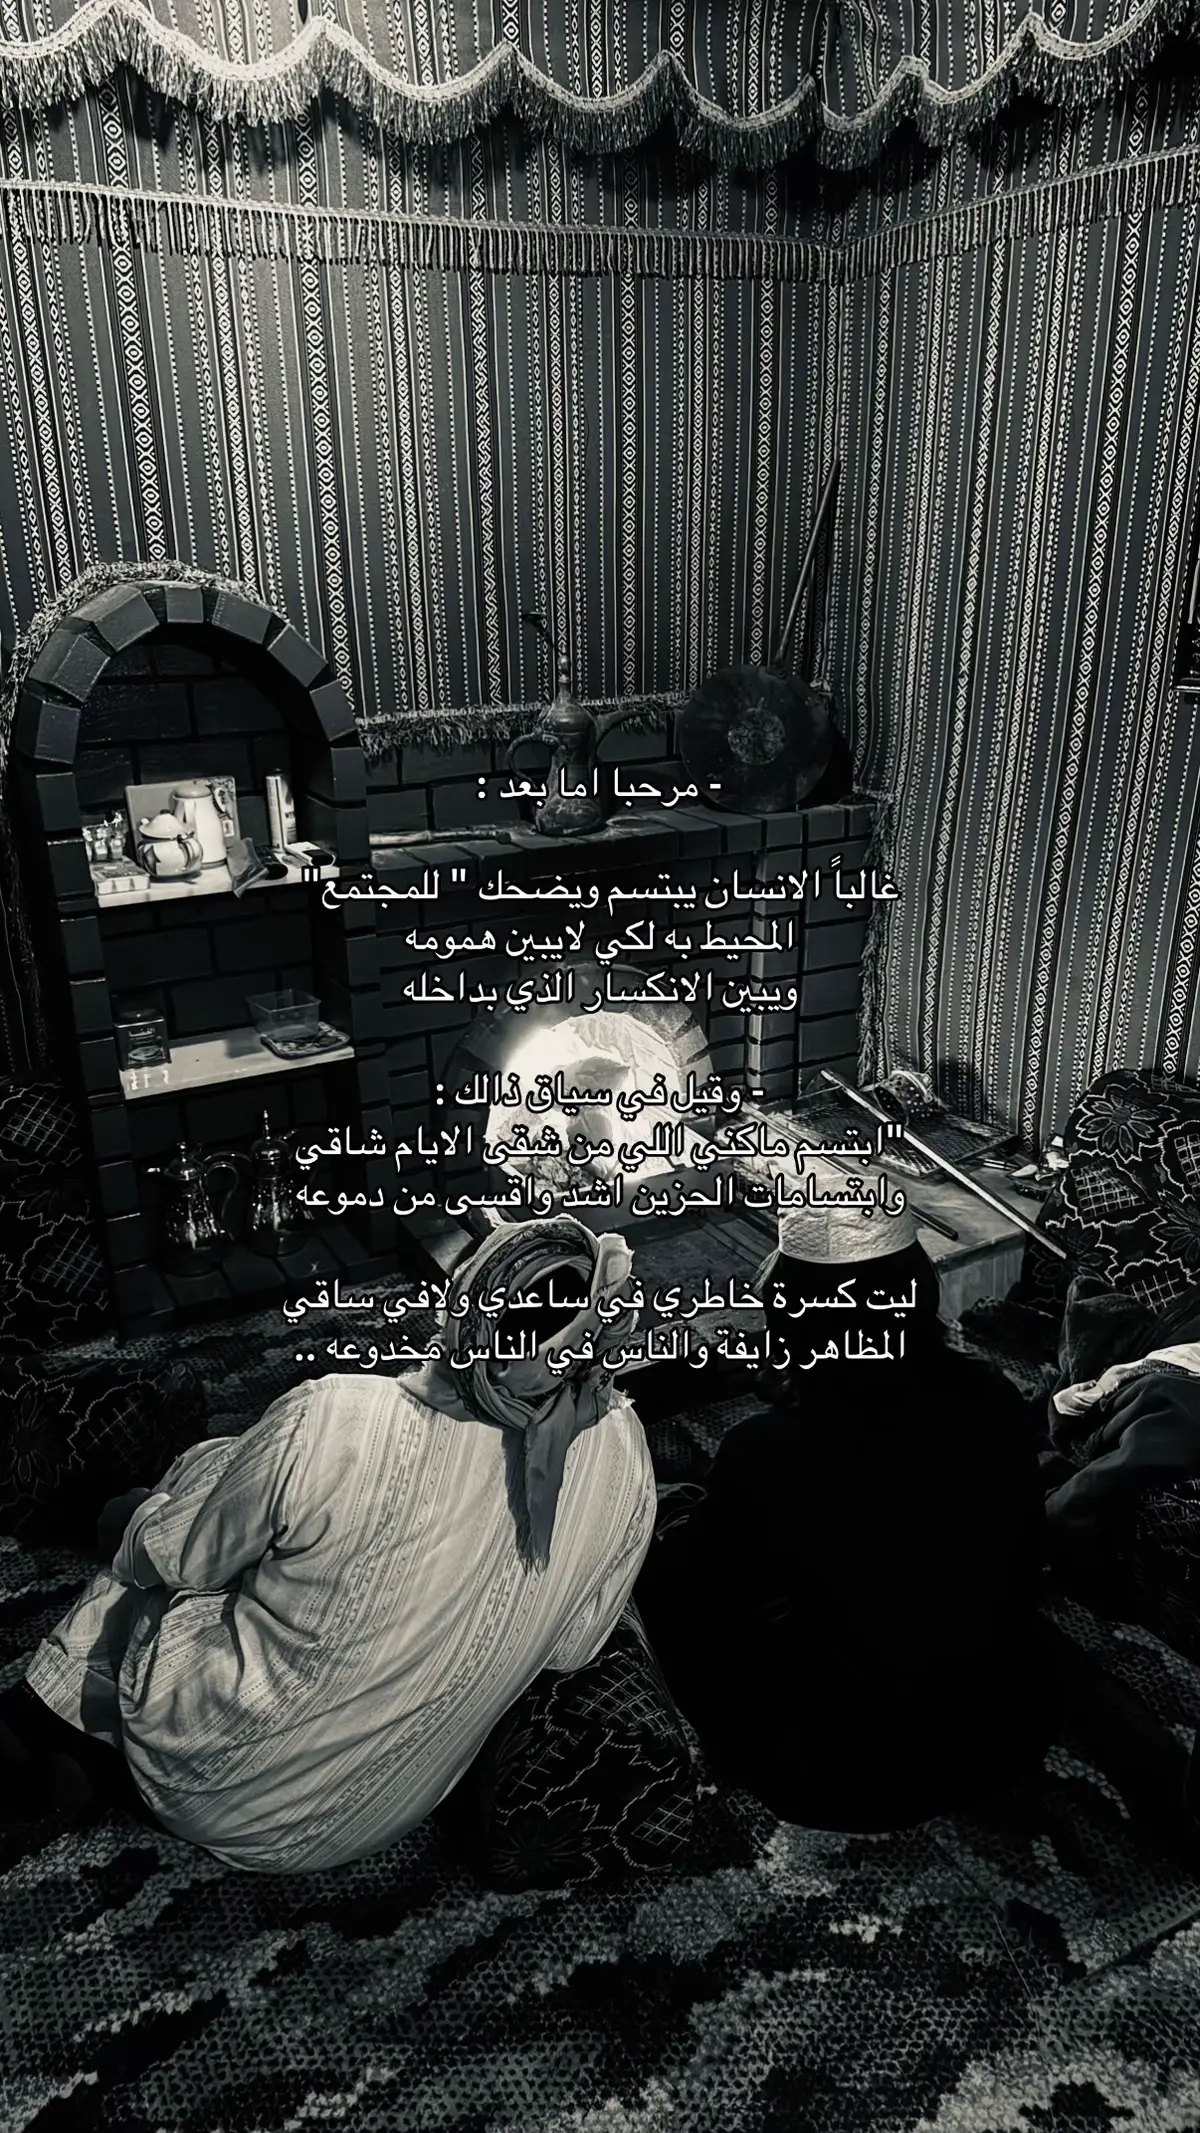 - مرحبا اما بعد :
غالباً الانسان يبتسم ويضحك " للمجتمع"
المحيط به لكي لايبين همومه
ويبين الانكسار الذي بداخله
- وقيل في سياق ذالك :
"ابتسم ماكني اللي من شقى الايام شاقي
وابتسامات الحزين اشد واقسى من دموعه
ليت كسرة خاطري في ساعدي ولافي ساقي
المظاهر زايفة والناس في الناس مخدوعه ..